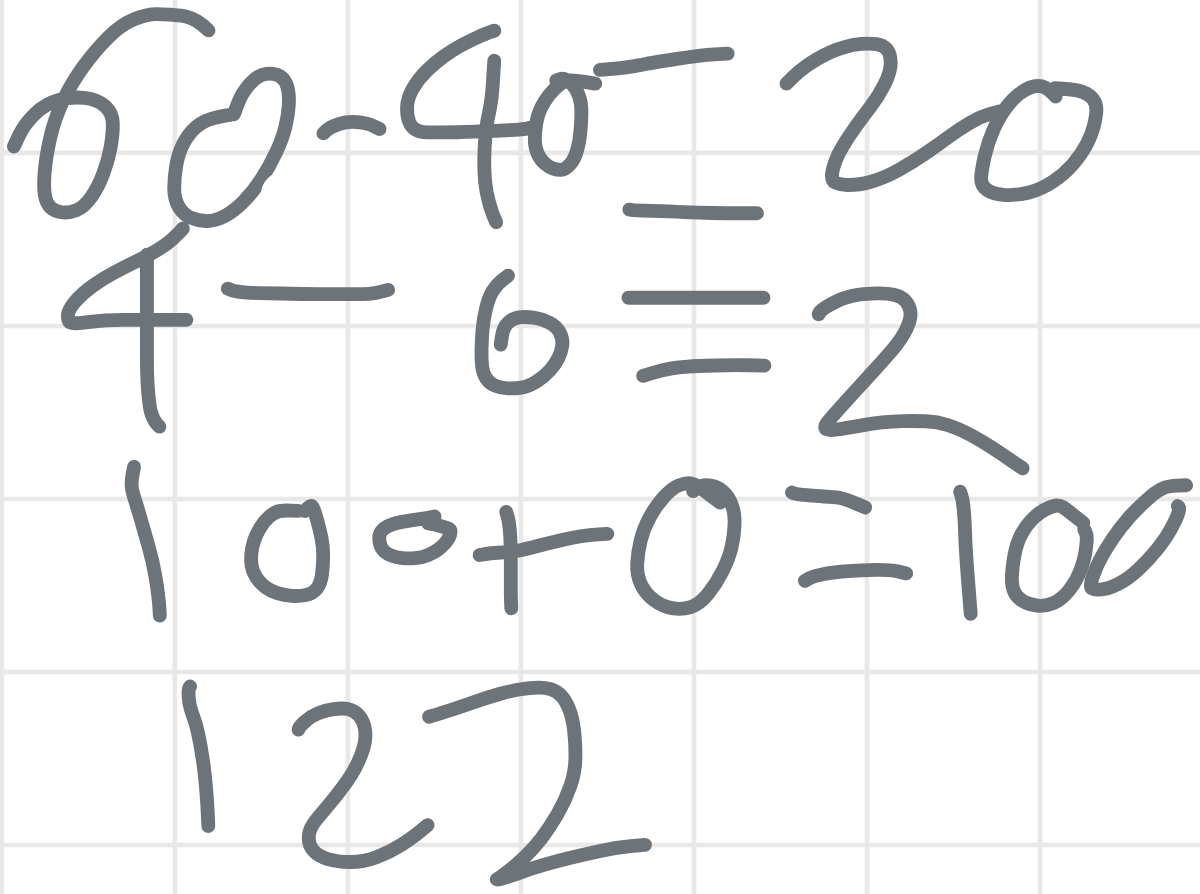 60-40=20
4-6=2
100+0=100
122